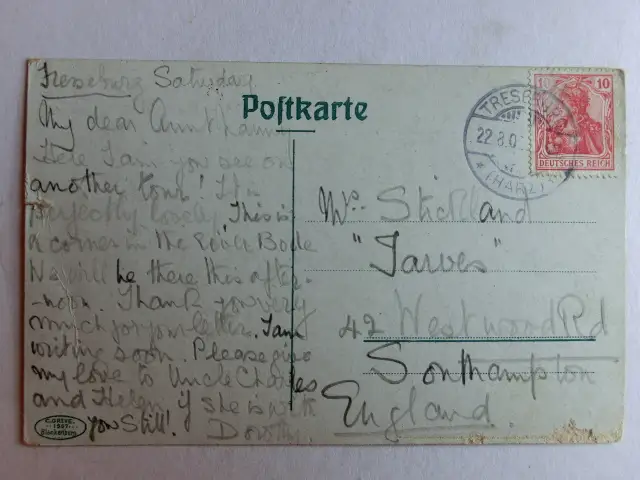 Treseburg Saturday
Postkarte
My dear Aunt
Here I am you see on
another tour! It is
perfectly lovely, This is
a corner in the River Bode
We will be there this after-
-noon. Thank you very
much for your letter. I am
writing soon. Please give
my love to Uncle Charles
and Helen if she is with
you still! Dorothy.
TRESEBURG
22.8.0
*(HARZ)*
10
DEUTSCHES REICH
Mrs. Stickland
"Jarves"
42 Westwood Rd
Southampton
England.
1907
Blankenburg